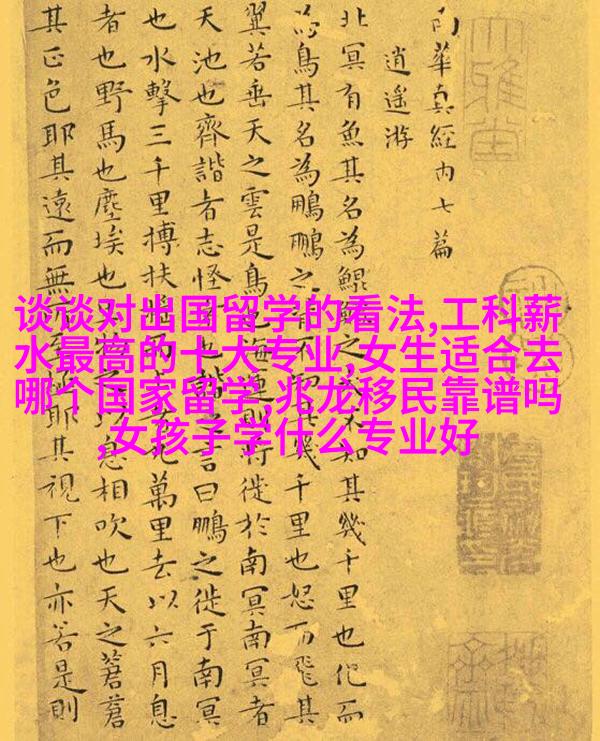 南華真經內七篇
逍遙游
北冥有魚其名為鯤鯤之大不知其幾千里也化而
為鳥其名為鵬鵬之背不知其幾千里也怒而飛其
翼若垂天之雲是鳥也海運則將徙於南冥南冥者
天池也齊諧者志怪者也諧之言曰鵬之徙于南冥
也水擊三千里搏扶搖而上者九萬里去以六月息
者也野馬也塵埃也生物之以息相吹也天之蒼蒼
其正色耶其遠而無所至極耶其視下也亦若是則
谈谈对出国留学的看法,工科薪
水最高的十大专业,女生适合去
哪个国家留学,兆龙移民靠谱吗
,女孩子学什么专业好